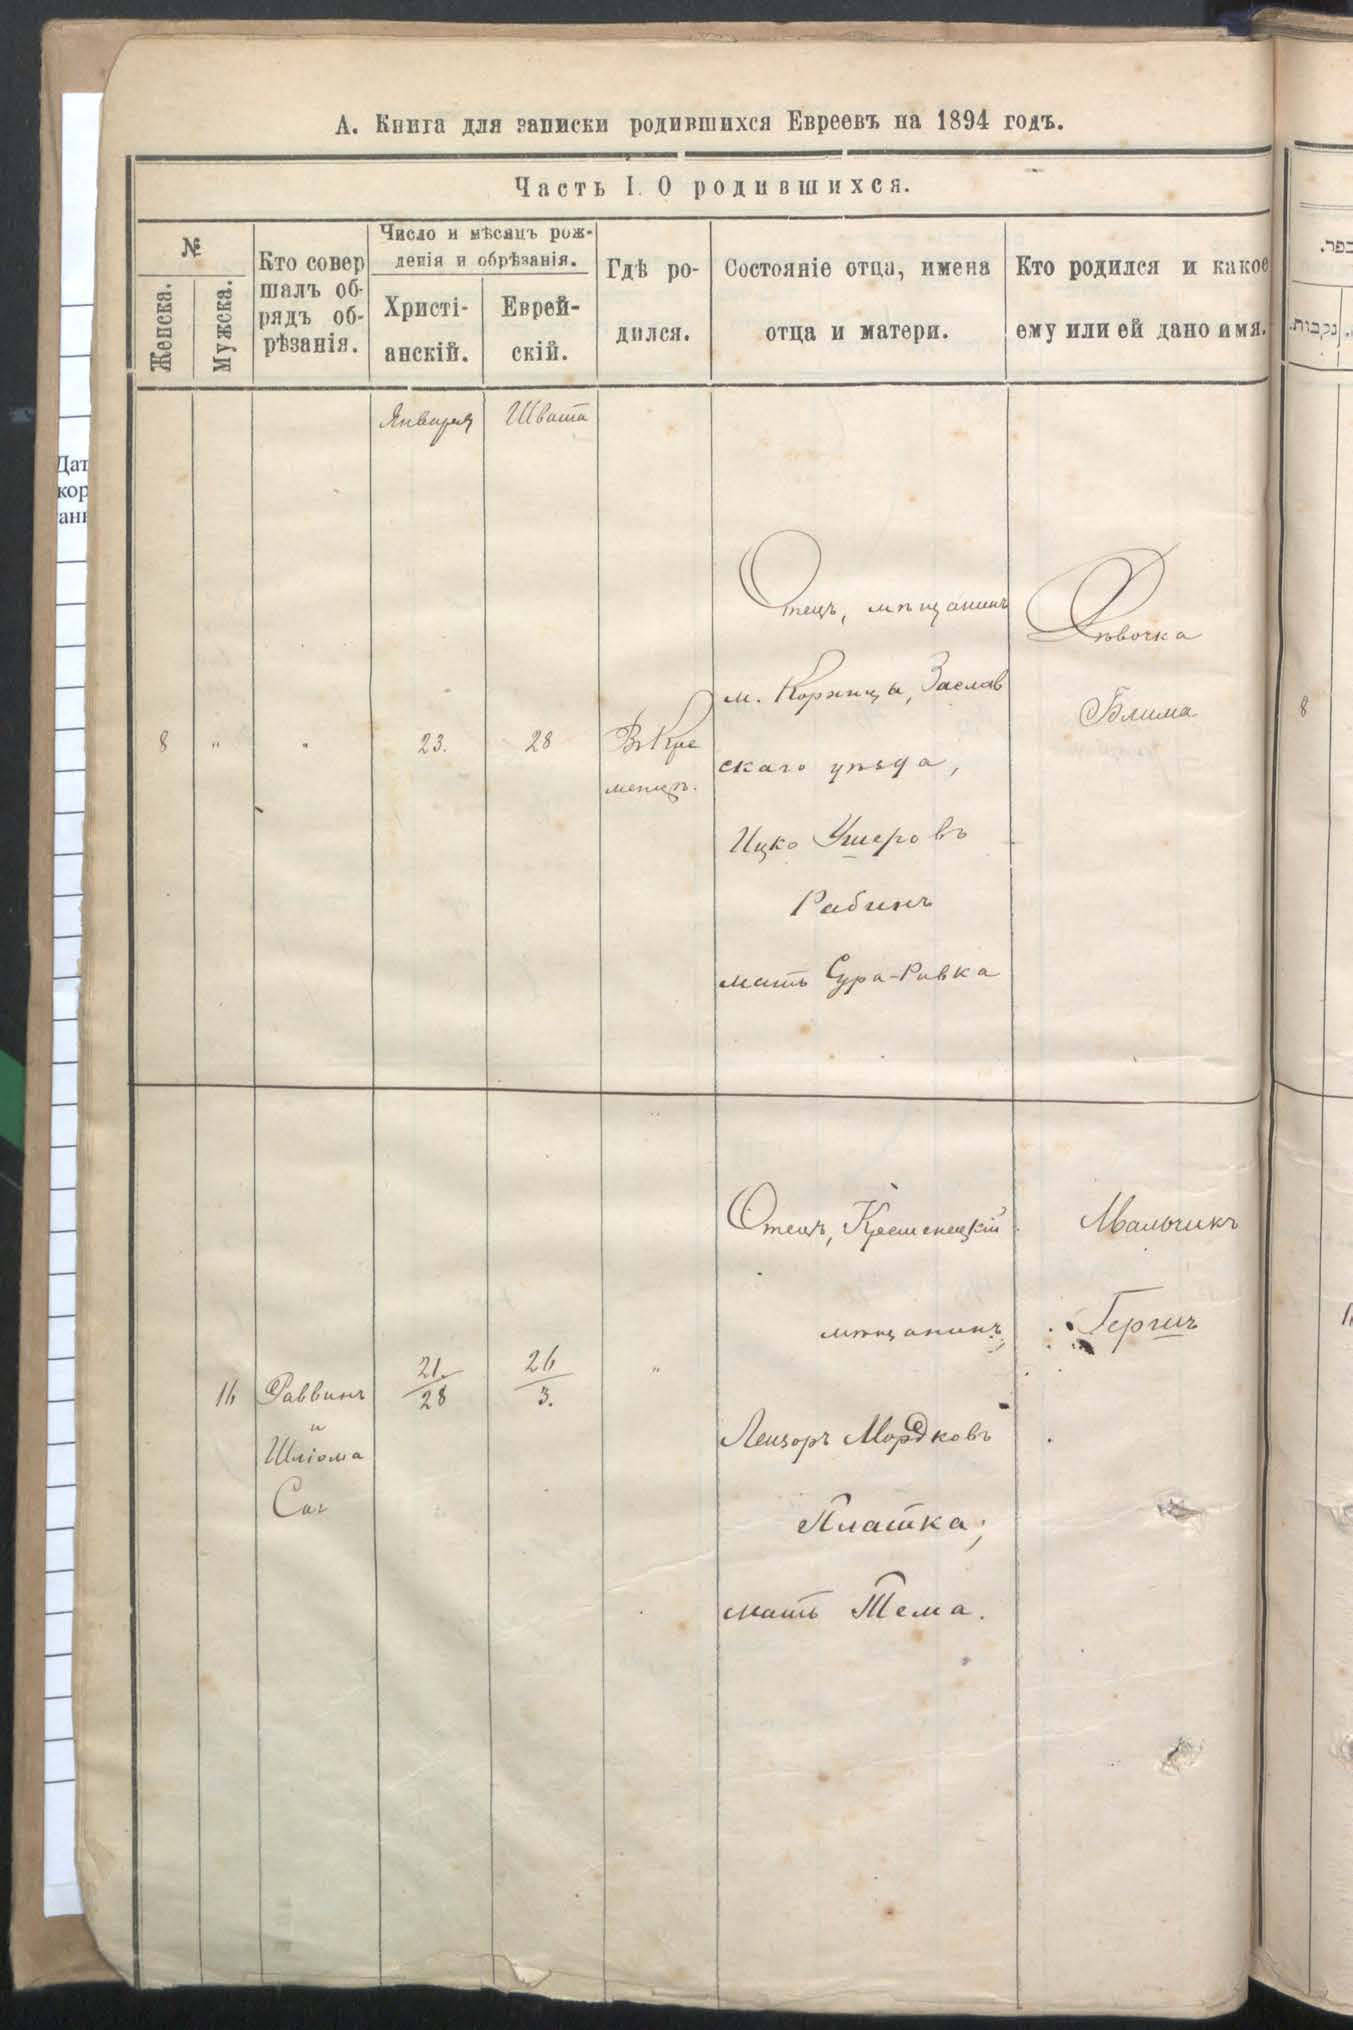 А. Книга для записки родившихся Евреевъ на 1894 годъ.
Часть I. О родившихся.
№
Женска.
Мужска.
Кто совер
шалъ об-
рядъ об-
рѣзанія.
Число и мѣсяцъ рож-
денія и обрѣзанія.
Христі-
анскій.
Еврей-
скій.
Гдѣ ро-
дился.
Состояніе отца, имена
отца и матери.
Кто родился и какое
ему или ей дано имя.
Января
Швата
8
"
"
23.
28
Въ Кре
менцѣ.
Отецъ, мѣщанинъ
м. Корницы, Заслав
скаго уѣзда,
Ицко Ушеровъ
Рабинъ
мать Сура-Ривка
Дѣвочка
Блима
16
Раввинъ
и
Шліома
Саг
21.
28
26
3.
"
Отецъ, Кременецкій
мѣщанинъ,
Лейзоръ Мордковъ
Платка;
мать Тема.
Мальчикъ
Гершъ
Дат
кор
ани
כפר.
נקבות.
8